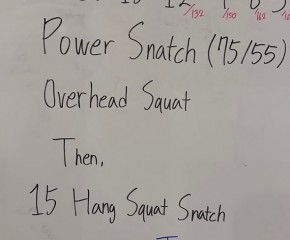 Power Snatch (75/55)
Overhead Squat
Then,
15 Hang Squat Snatch